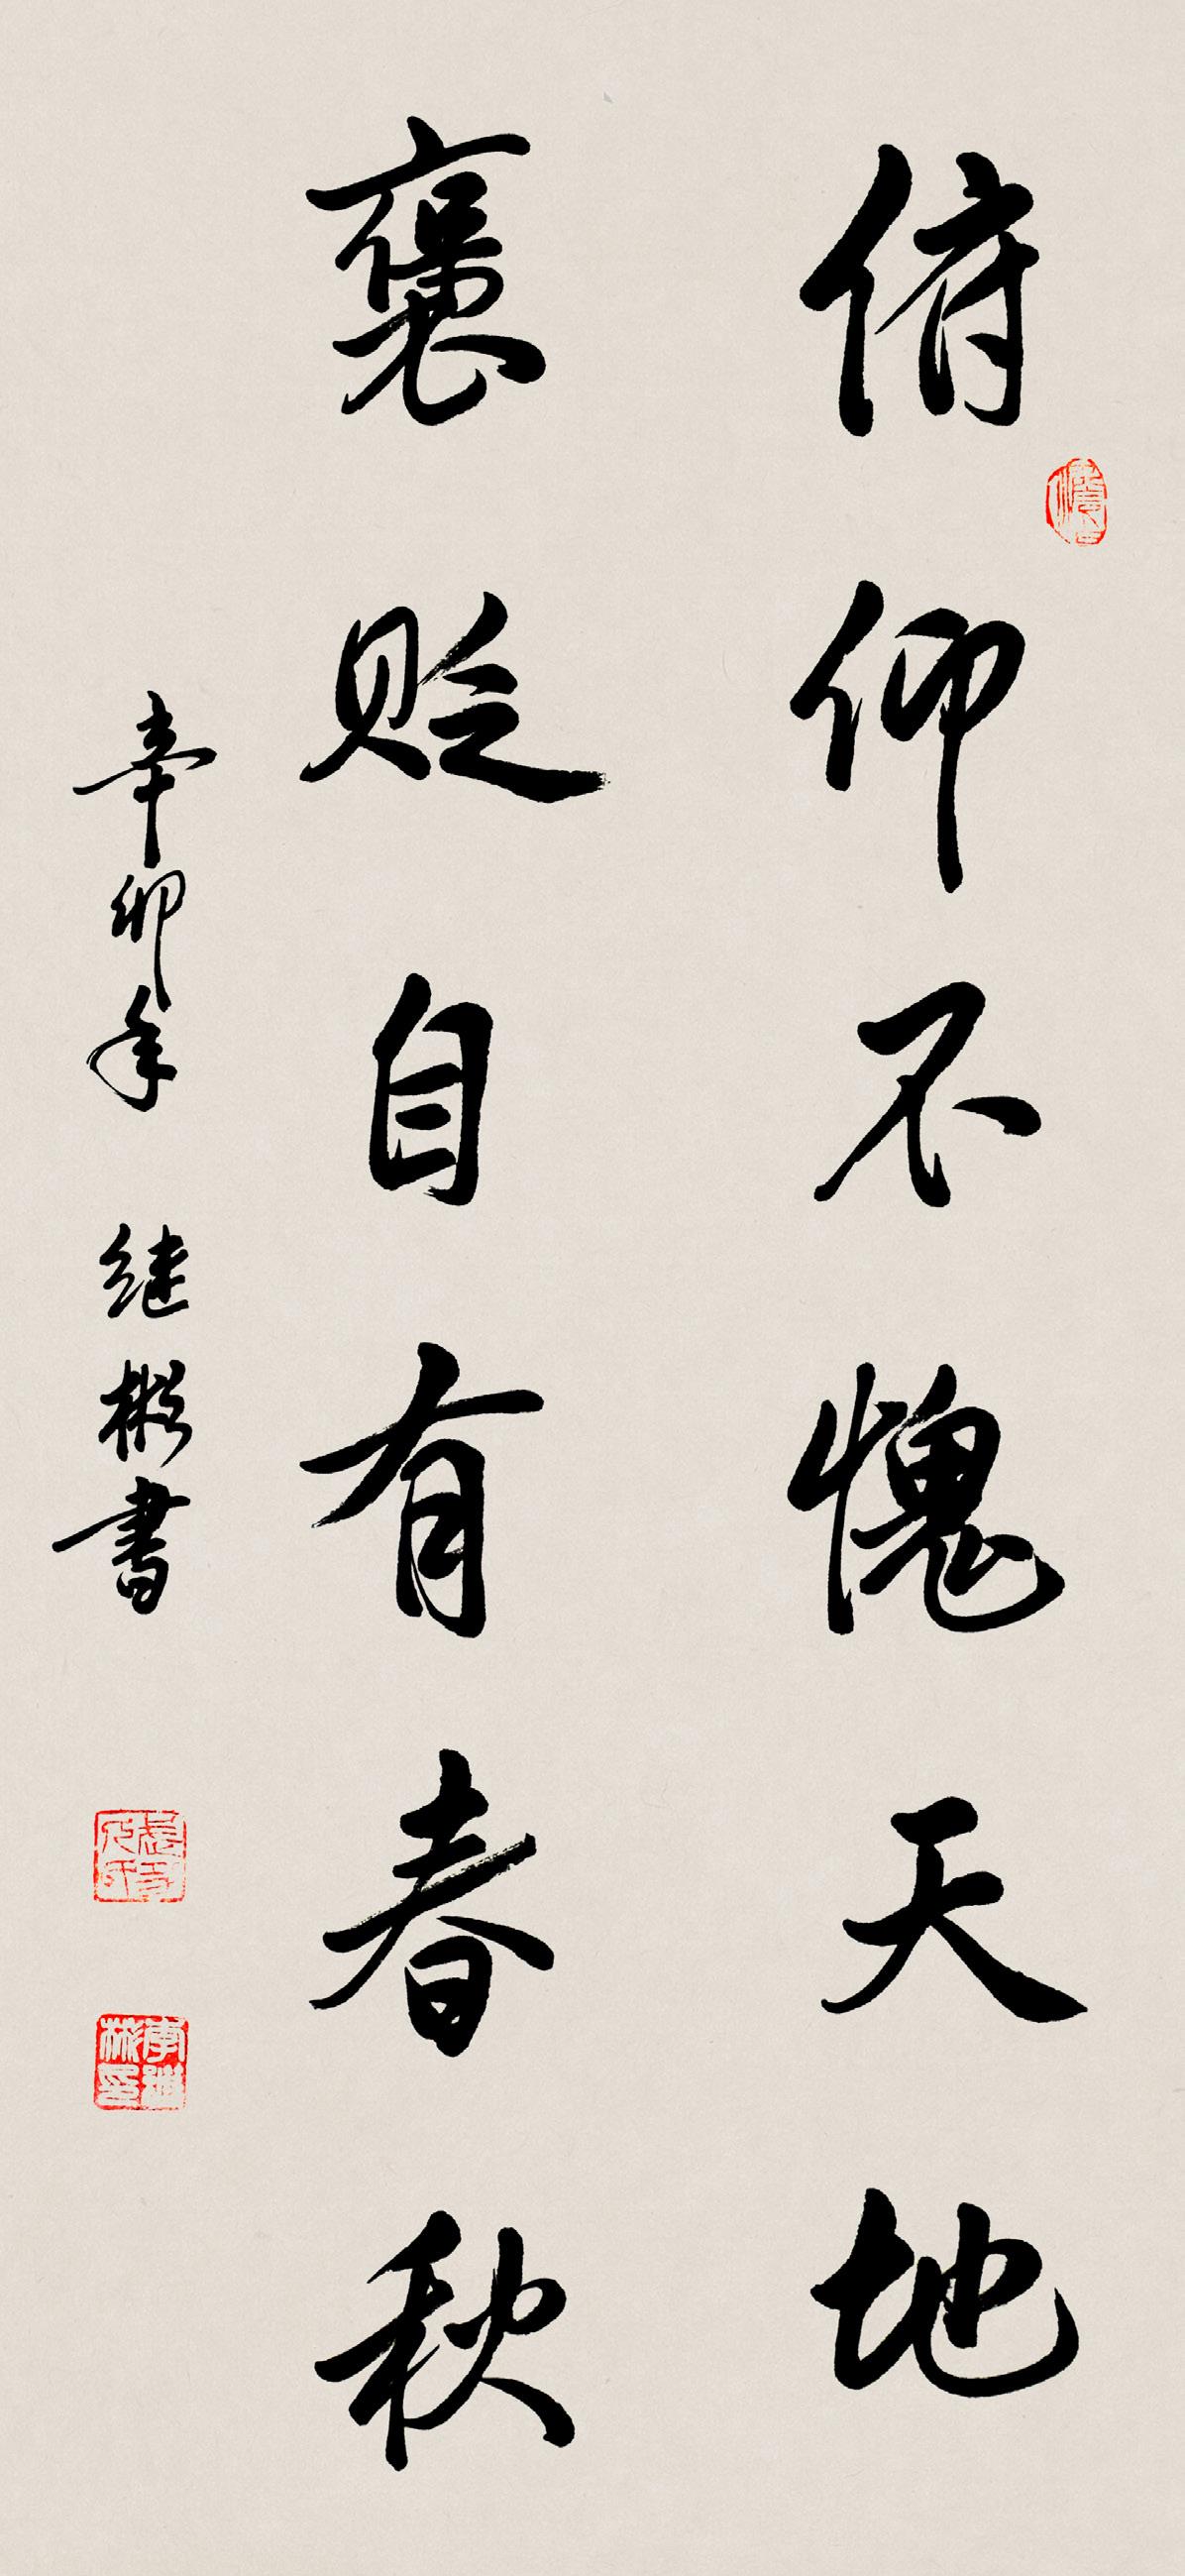 俯仰不愧天地
褒贬自有春秋
辛卯年 继彬書
李继彬印